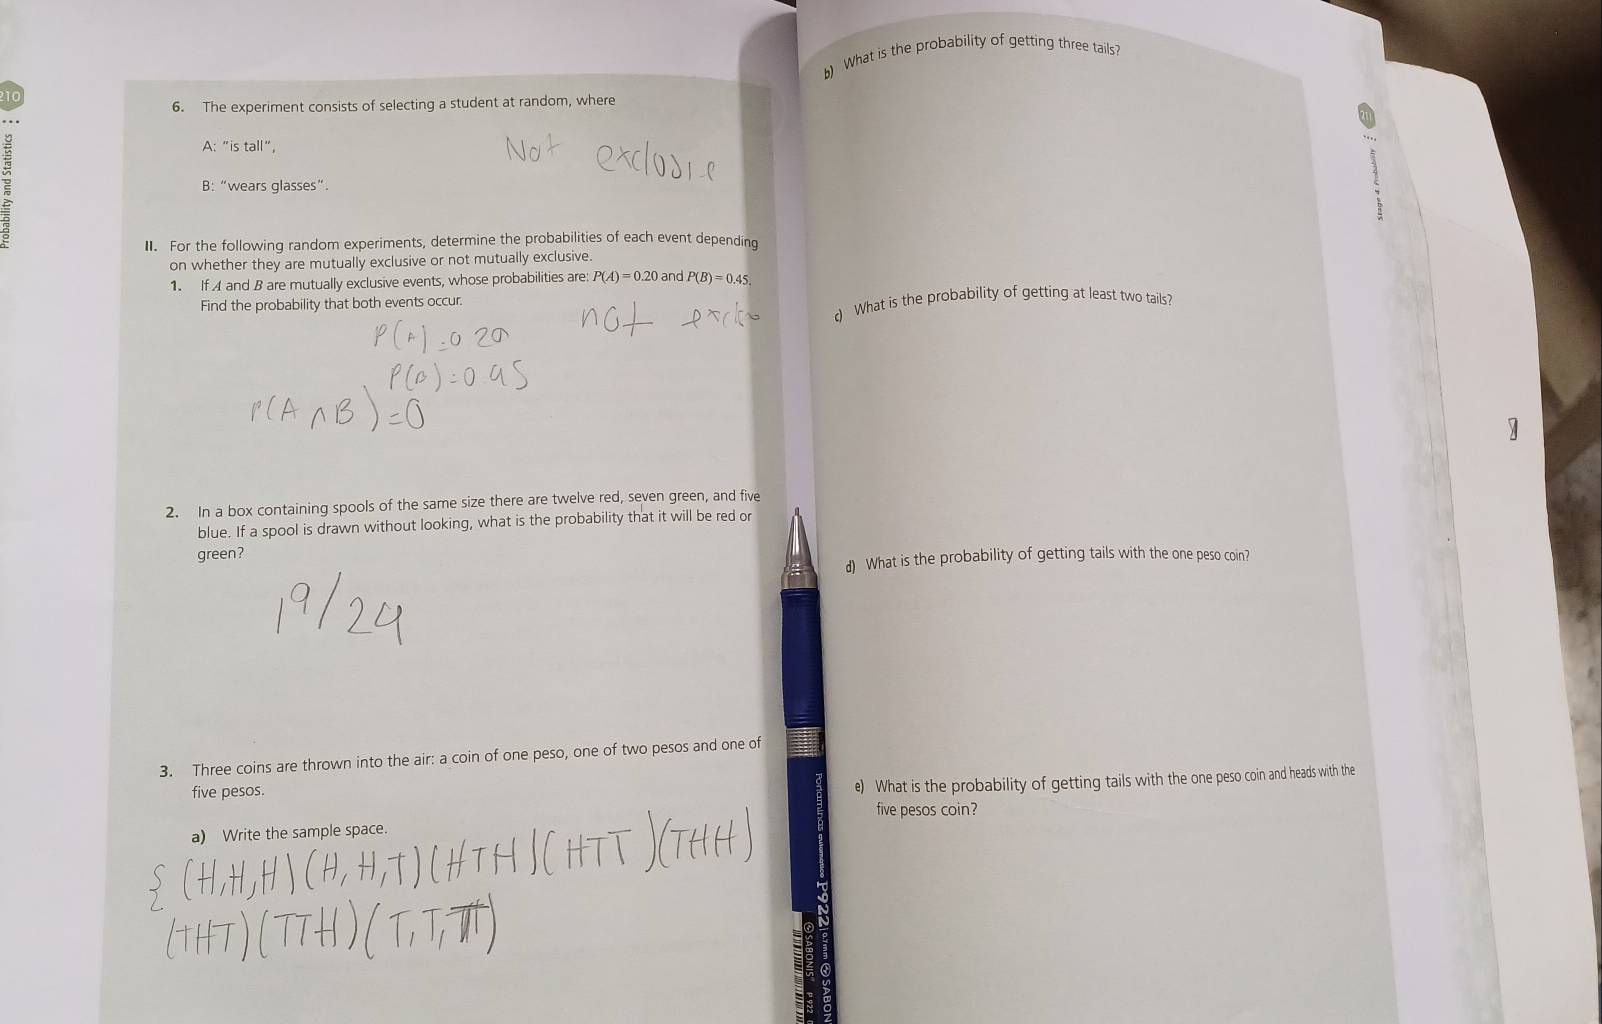 210
Probability and Statistics
6. The experiment consists of selecting a student at random, where
A: "is tall",
Not exclusive
B: "wears glasses".
II. For the following random experiments, determine the probabilities of each event depending
on whether they are mutually exclusive or not mutually exclusive.
1. If A and B are mutually exclusive events, whose probabilities are: P(A) = 0.20 and P(B) = 0.45.
Find the probability that both events occur.
not
P(A)=0 20
P(B)=0.45
P(A ∩ B)=0
2. In a box containing spools of the same size there are twelve red, seven green, and five
blue. If a spool is drawn without looking, what is the probability that it will be red or
green?
19/24
3. Three coins are thrown into the air: a coin of one peso, one of two pesos and one of
five pesos.
a) Write the sample space.
{ (H,H,H) (H,H,T) (HTH) (HTT) (THH)
(THT) (TTH) (T,T,T)
b) What is the probability of getting three tails?
211
Stage 4. Probability
c) What is the probability of getting at least two tails?
d) What is the probability of getting tails with the one peso coin?
e) What is the probability of getting tails with the one peso coin and heads with the
five pesos coin?
Portaminas P922 0.7mm SABON
SABONIS P 922